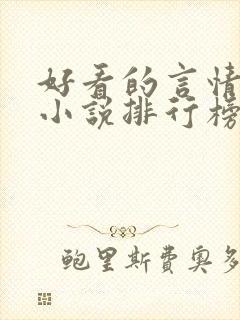 好看的言情
小说排行榜
鲍里斯費奥多